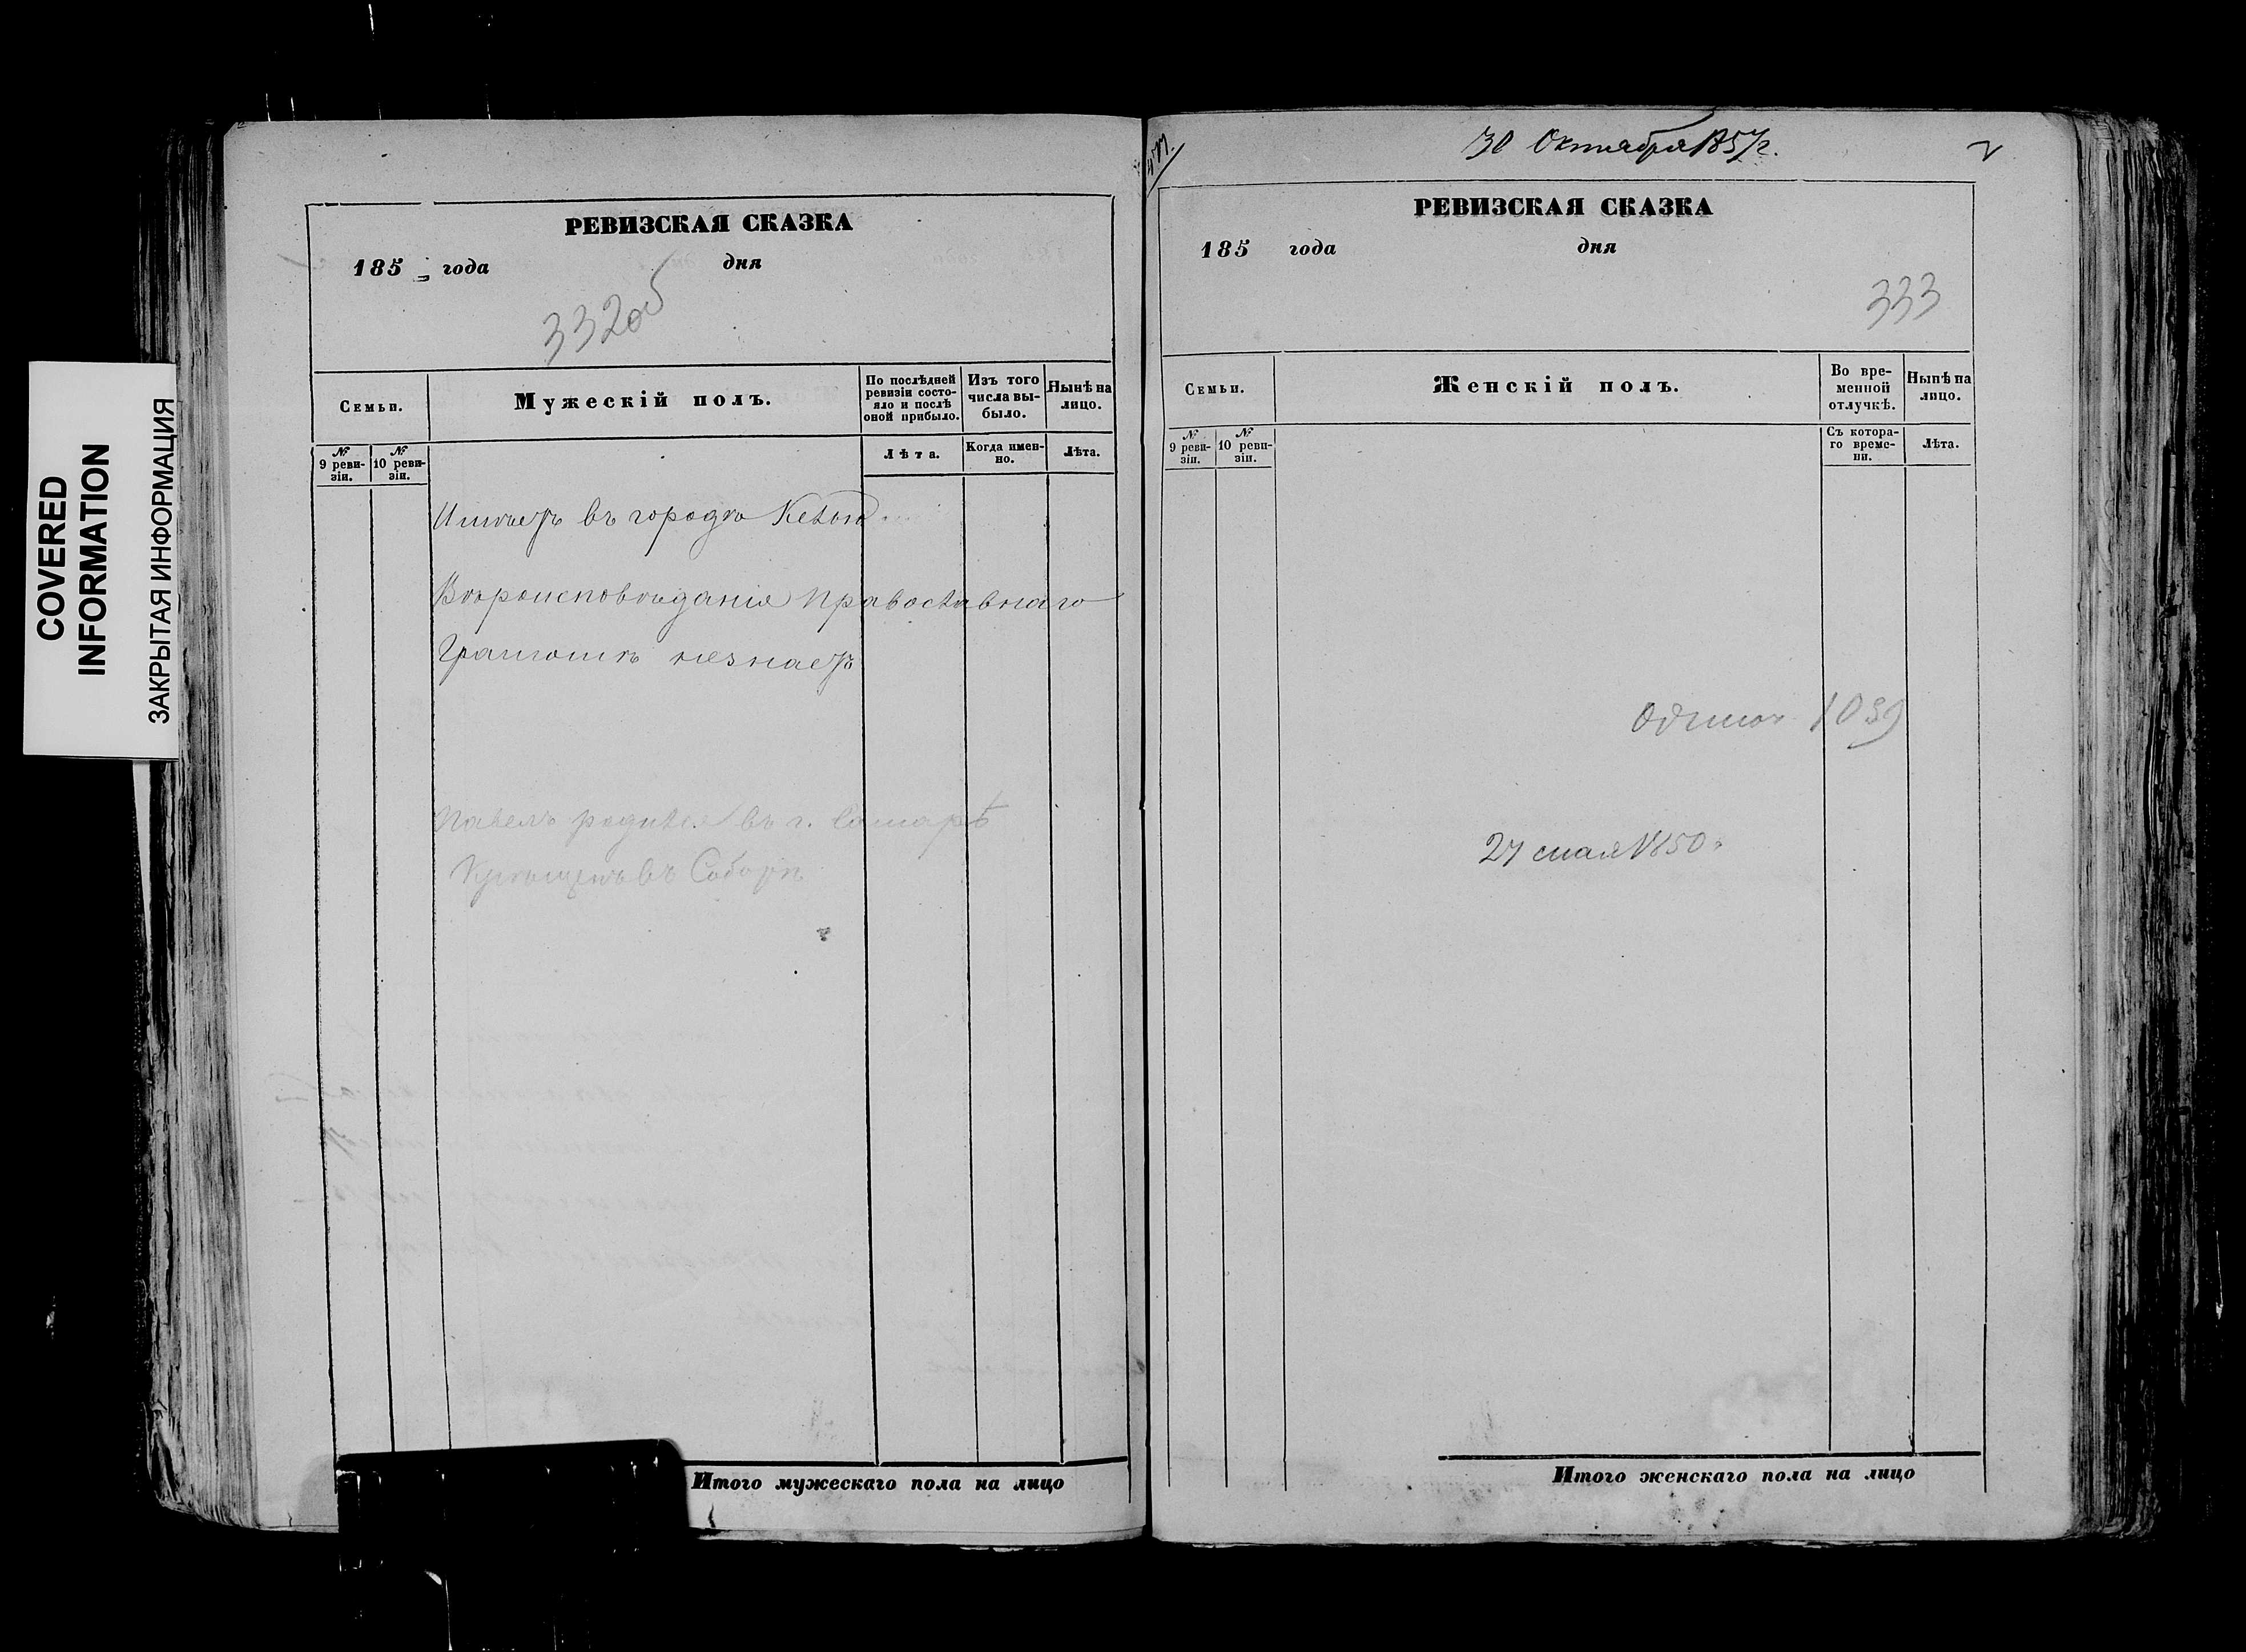 COVERED
INFORMATION
ЗАКРЫТАЯ ИНФОРМАЦИЯ
РЕВИЗСКАЯ СКАЗКА
185 года дня
332об
Семьи.
Мужескій полъ.
По послѣдней ревизіи состояло и послѣ оной прибыло.
Изъ того числа выбыло.
Нынѣ на лицо.
№ 9 ревизіи.
№ 10 ревизіи.
Лѣта.
Когда именно.
Лѣта.
въ городѣ
Вѣроисповѣданія православнаго
Грамотѣ незнаетъ
Павелъ родился въ г. Самарѣ
Крещенъ въ Соборѣ
Итого мужескаго пола на лицо
30 Октября 1857 г.
РЕВИЗСКАЯ СКАЗКА
185 года дня
333
Семьи.
Женскій полъ.
Во временной отлучкѣ.
Нынѣ на лицо.
№ 9 ревизіи.
№ 10 ревизіи.
Съ котораго времени.
Лѣта.
1059
27 мая 1850
Итого женскаго пола на лицо